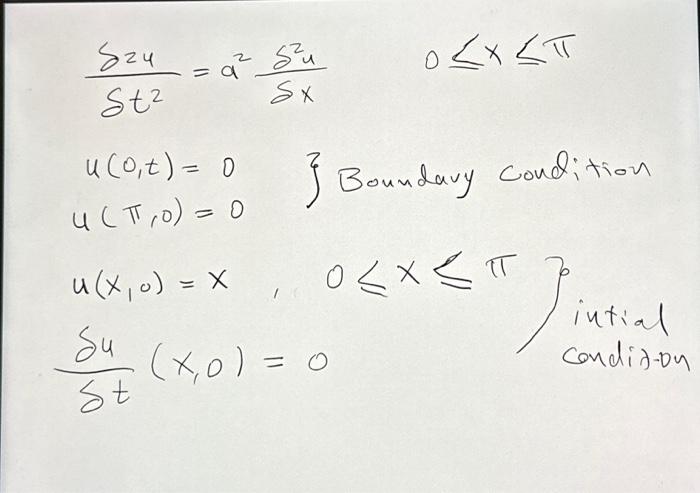 δ²u/δt² = a² δ²u/δx 0 ≤ x ≤ π
u(0,t) = 0
u(π,0) = 0 } Boundary condition
u(x,0) = x , 0 ≤ x ≤ π
δu/δt (x,0) = 0 } intial condition